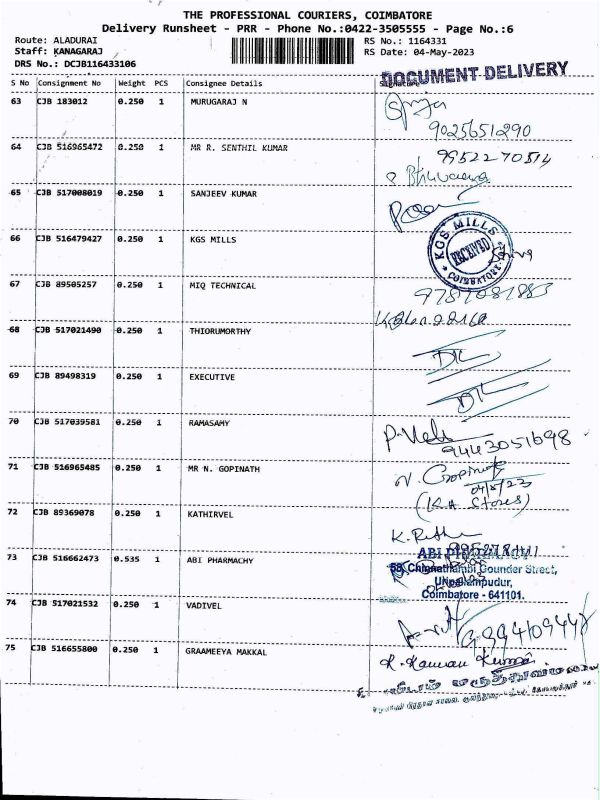 THE PROFESSIONAL COURIERS, COIMBATORE
Delivery Runsheet - PRR - Phone No.:0422-3505555 - Page No.:6
Route: ALADURAI RS No.: 1164331
Staff: KANAGARAJ RS Date: 04-May-2023
DRS No.: DCJB116433106
DOCUMENT DELIVERY
S No Consignment No Weight PCS Consignee Details Signature
63 CJB 183012 0.250 1 MURUGARAJ N
9025651290
64 CJB 516965472 0.250 1 MR R. SENTHIL KUMAR
9952270514
65 CJB 517008019 0.250 1 SANJEEV KUMAR
66 CJB 516479427 0.250 1 KGS MILLS
KGS MILLS
RECEIVED
COIMBATORE
67 CJB 89505257 0.250 1 MIQ TECHNICAL
68 CJB 517021490 0.250 1 THIORUMORTHY
69 CJB 89498319 0.250 1 EXECUTIVE
70 CJB 517039581 0.250 1 RAMASAMY
9443051698
71 CJB 516965485 0.250 1 MR N. GOPINATH
N. Gopinath
04/5/23
Stores)
72 CJB 89369078 0.250 1 KATHIRVEL
73 CJB 516662473 0.535 1 ABI PHARMACHY
ABI PHARMACY
58, Chinnathambi Gounder Street,
Coimbatore - 641101.
74 CJB 517021532 0.250 1 VADIVEL
75 CJB 516655800 0.250 1 GRAAMEEYA MAKKAL